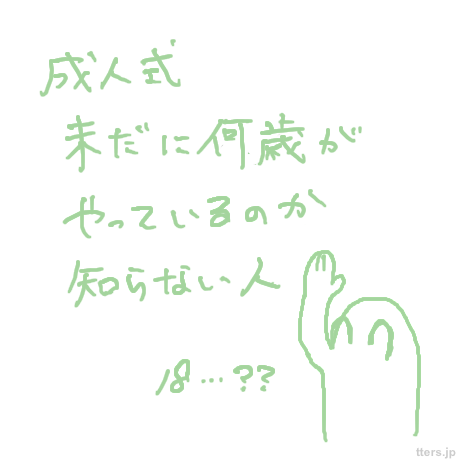 成人式
未だに何歳が
やっているのか
知らない人
18…??
tters.jp